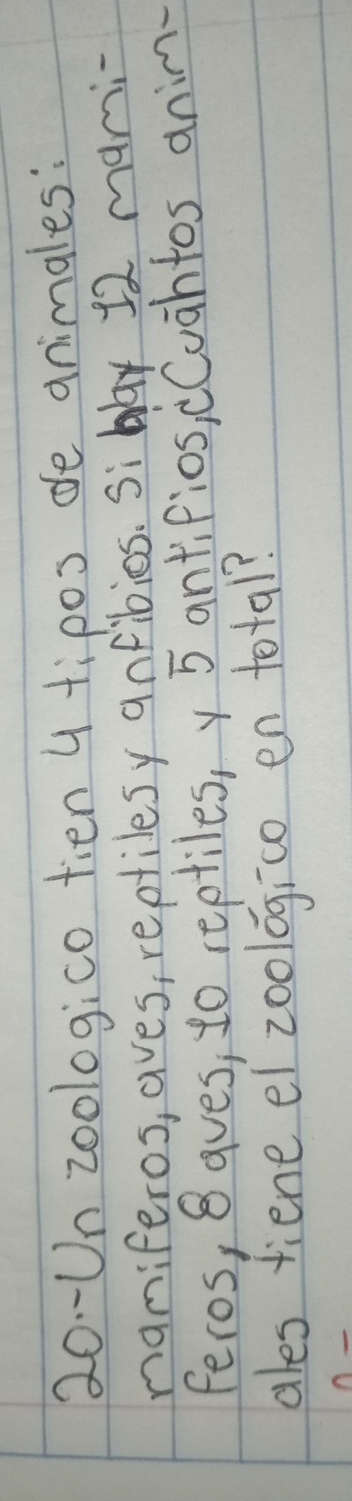 20.-Un zoologico tien 4 tipos de animales:
mamiferos, aves, reptiles y anfibios. Si hay 12 mami-
feros, 8 aves, 10 reptiles, y 5 antifios, ¿Cuántos anim-
ales tiene el zoológico en total?